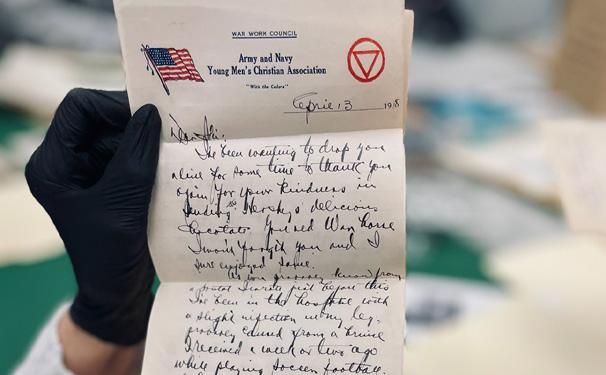 WAR WORK COUNCIL
Army and Navy
Young Men's Christian Association
"With the Colors"
April 13 1918
Dear
I've been wanting to drop you
a line for some time to thank you
again for your kindness in
sending me Hershey's delicious
chocolate. You old War horse
I won't forget you and I
sure enjoyed same.
As you probably know from
a postal I wrote just before this
I've been in the hospital with
a slight infection in my leg.
probably caused from a bruise
I received a week or two ago
while playing soccer football.